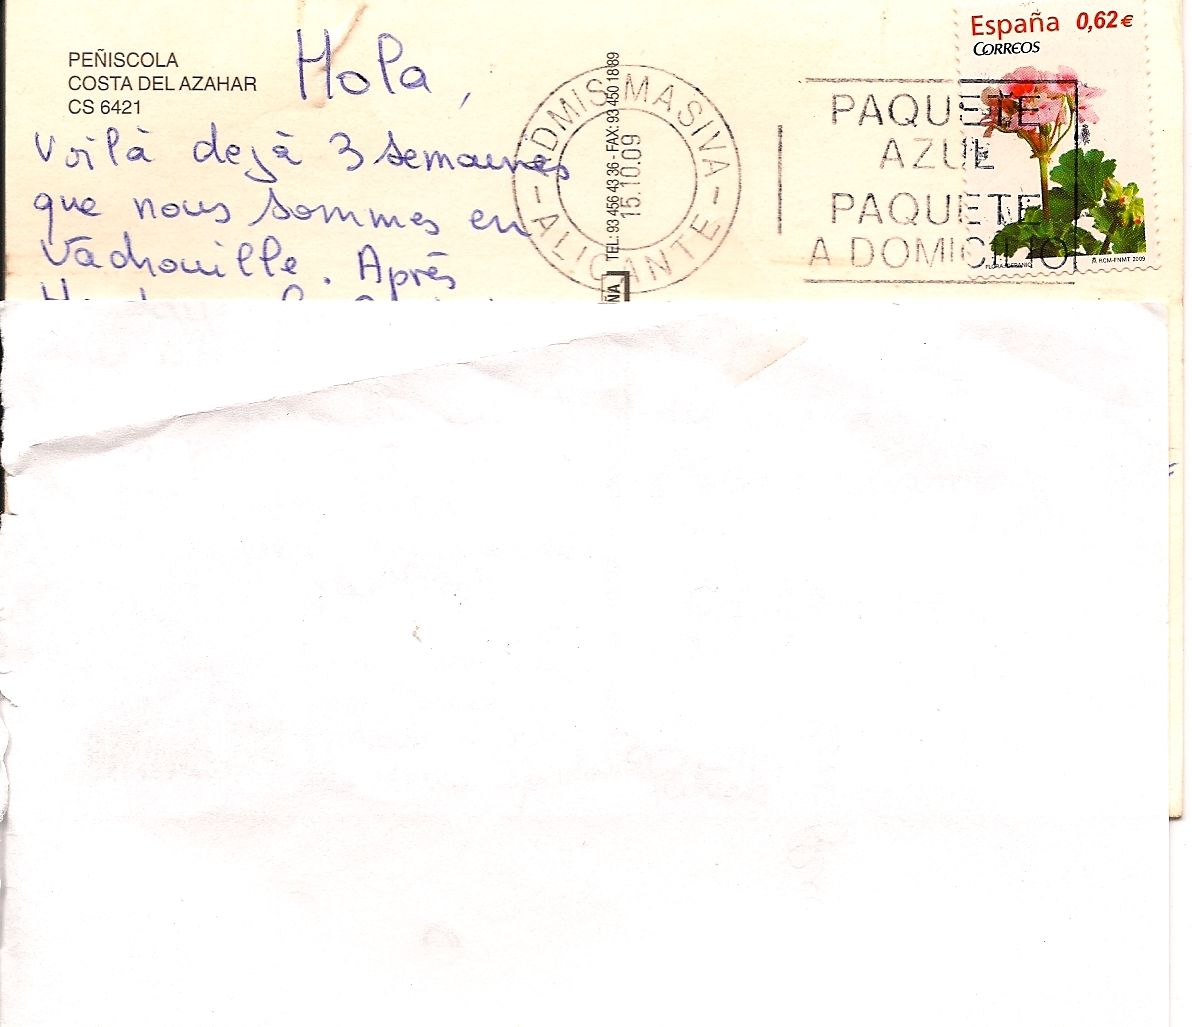 PEÑISCOLA
COSTA DEL AZAHAR
CS 6421
Hola,
Voilà dejà 3 semaines
que nous sommes en
Vadrouille. Après
TEL: 93 456 43 36 - FAX: 93 450 18 89
ADMIS MASIVA
15.10.09
- ALICANTE -
PAQUETE
AZUL
PAQUETE
A DOMICILIO
España 0,62€
CORREOS
FLORA. GERANIO
RCM-FNMT 2009